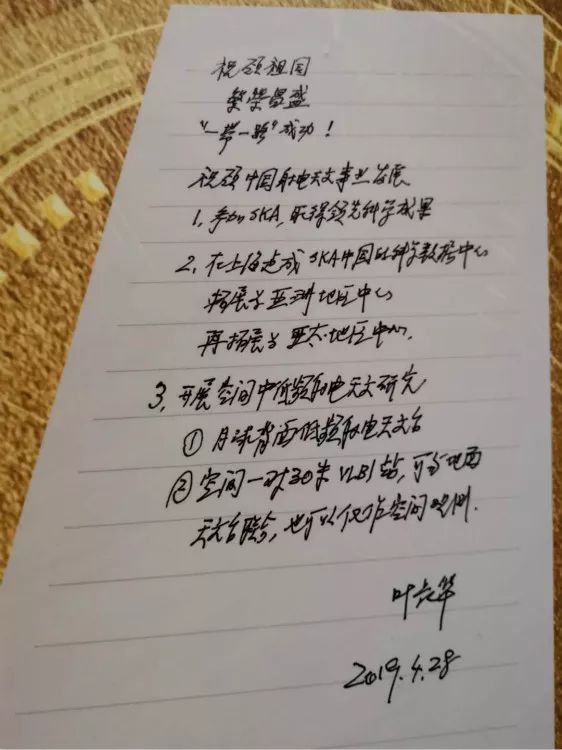 祝颂祖国
繁荣昌盛
"一带一路"成功！
祝颂中国射电天文事业发展
1. 参加SKA，取得领先科学成果
2. 在上海建成SKA中国区科学数据中心
拓展为亚洲地区中心
再拓展为亚太地区中心.
3, 开展空间中低频射电天文研究
① 月球背面低频射电天文台
② 空间一对30米VLBI站, 可与地面
天文台联合, 也可以仅作空间观测.
叶叔华
2019.4.28